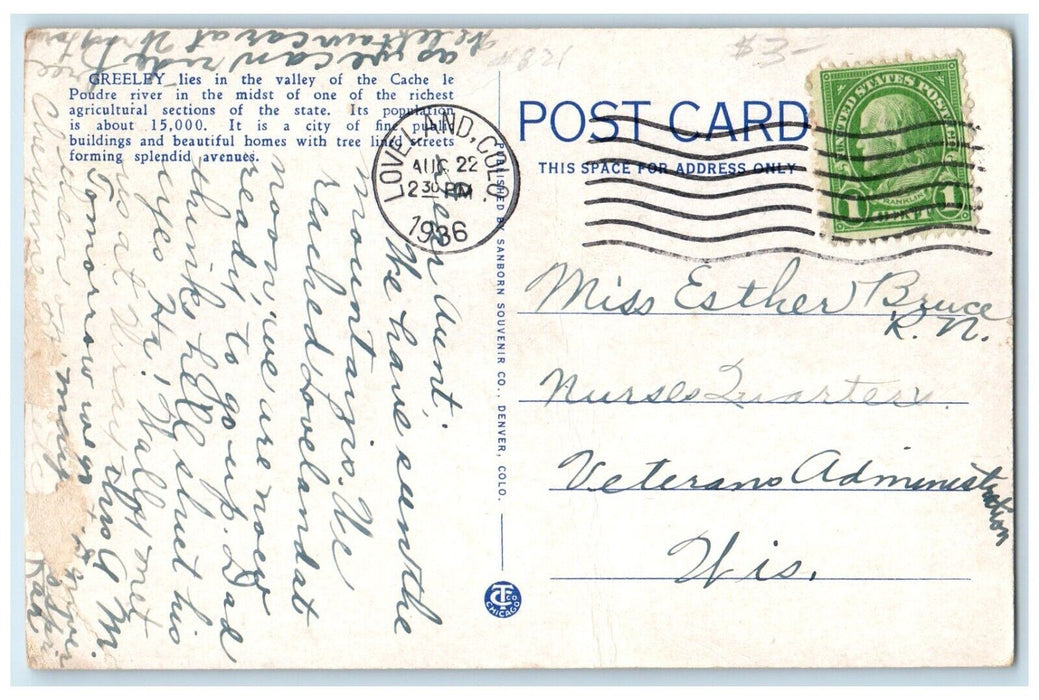 #821
$3-
GREELEY lies in the valley of the Cache le
Poudre river in the midst of one of the richest
agricultural sections of the state. Its population
is about 15,000. It is a city of fine public
buildings and beautiful homes with tree lined streets
forming splendid avenues.
POST CARD
THIS SPACE FOR ADDRESS ONLY
LOVELAND, COLO.
AUG 22
2 30 PM
1936
UNITED STATES POSTAGE
FRANKLIN
1 CENT 1
PUBLISHED BY SANBORN SOUVENIR CO., DENVER, COLO.
CT CO. CHICAGO
Miss Esther Bruce
R.N.
Nurses Quarters.
Veterans Administration
Wis.
Aunt,
We have seen the
mountains. We
reached Loveland at
noon, we are now
ready to go up. Dad
thinks he'll shut his
eyes Ha! Wally isn't
Tomorrow we
as we can ride